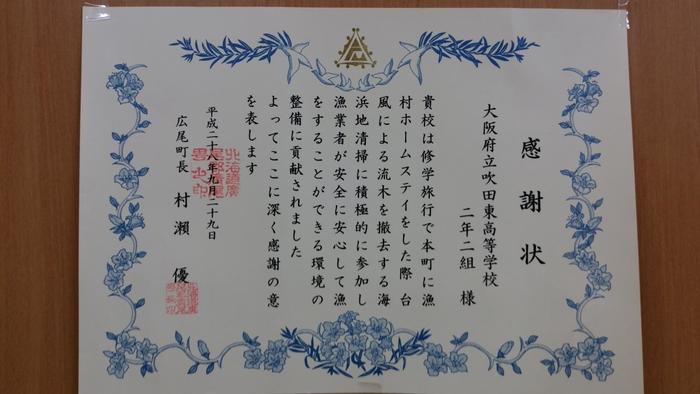 感謝状
大阪府立吹田東高等学校
二年二組 様
貴校は修学旅行で本町に漁
村ホームステイをした際 台
風による流木を撤去する海
浜地清掃に積極的に参加し
漁業者が安全に安心して漁
をすることができる環境の
整備に貢献されました
よってここに深く感謝の意
を表します
平成二十八年九月二十九日
広尾町長 村瀬 優